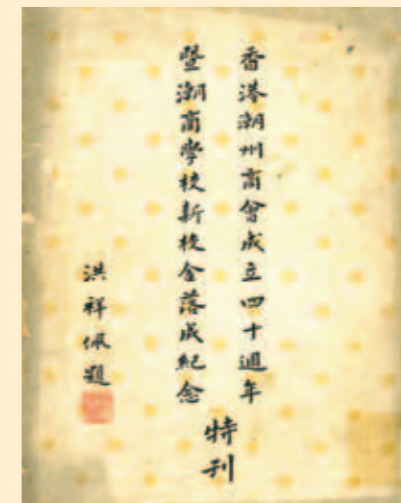 香港潮州商會成立四十週年
暨潮商學校新校舍落成紀念
特刊
洪祥佩題